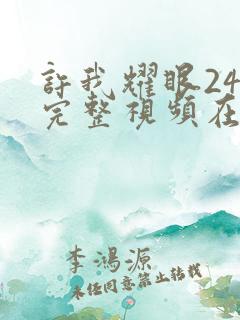 許我耀眼24
完整視頻在
李鴻源
未經同意禁止轉載